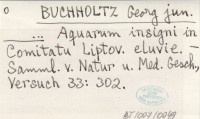 o BUCHHOLTZ Georg jun.
... Aquarum insigni in
Comitatu Liptov. eluvie. –
Samml. v. Natur u. Med. Gesch.,
Versuch 33: 302.
BT/007/0049